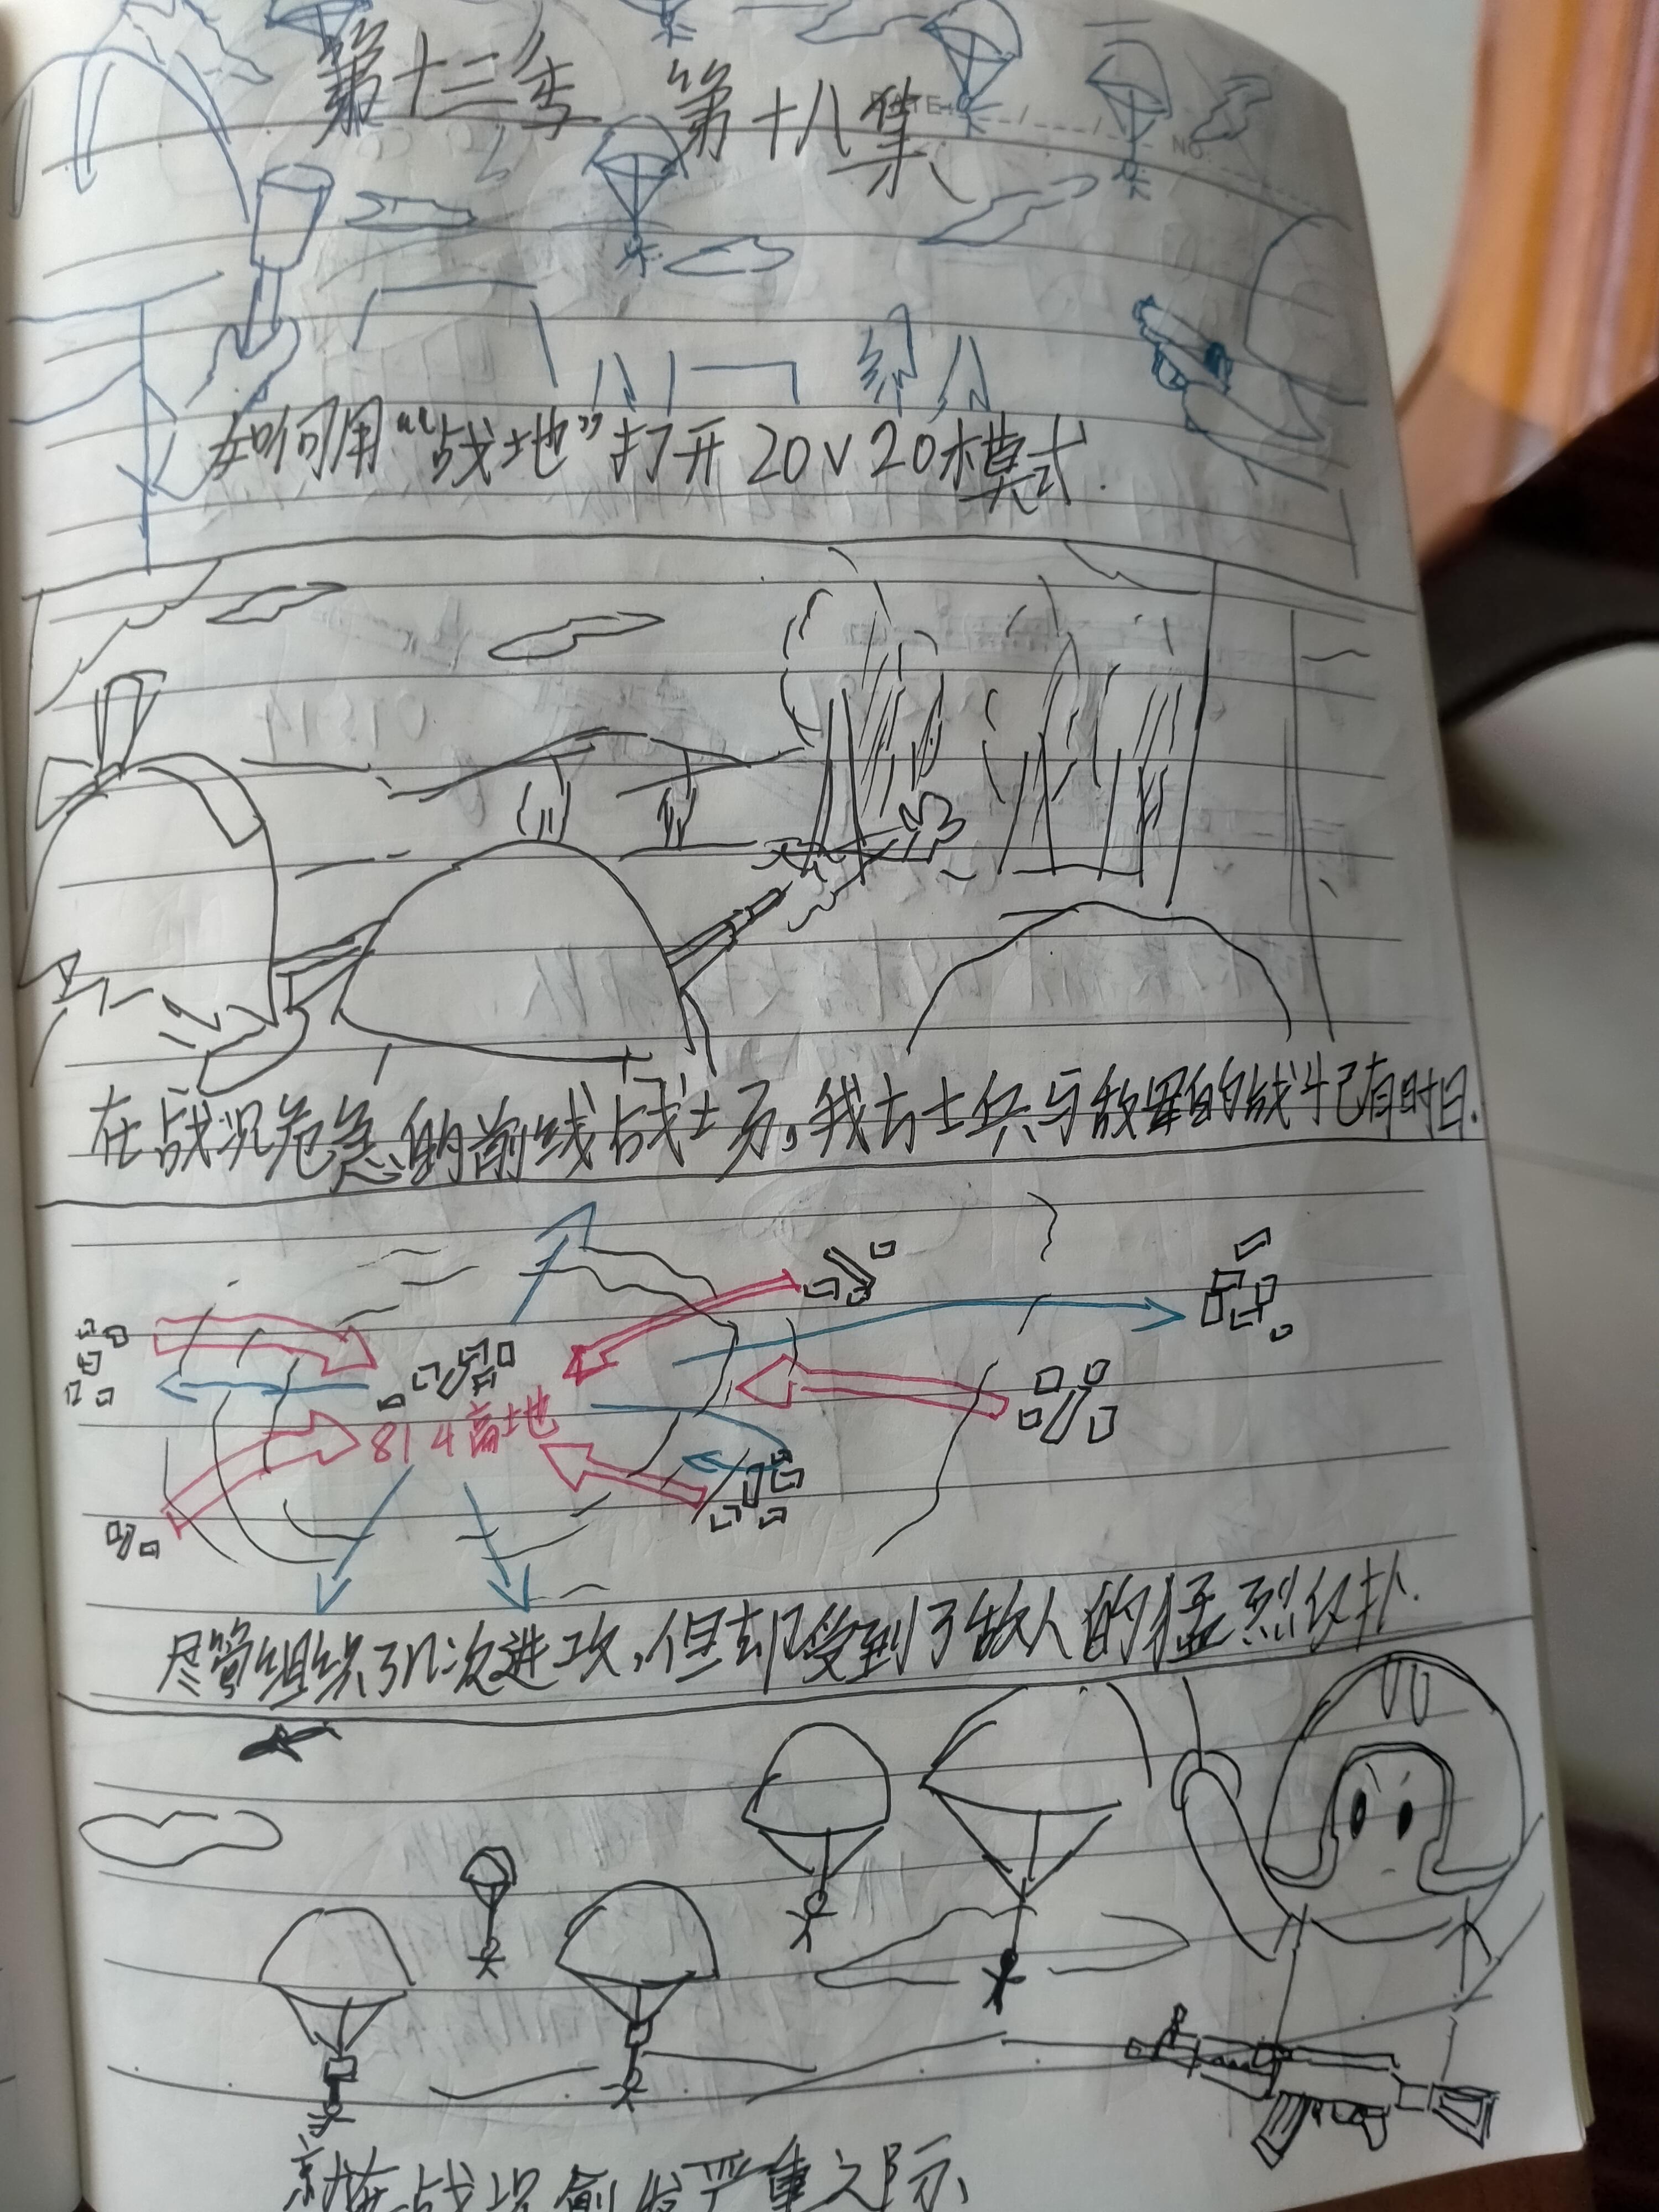 第十三季 第十八集
DATE
NO.
如何用“战地”打开20v20模式.
在战况危急的前线战场,我方士兵与敌军的战斗已有时日.
814高地
尽管组织了几次进攻,但却受到了敌人的猛烈反扑.
就在战况愈发严重之际